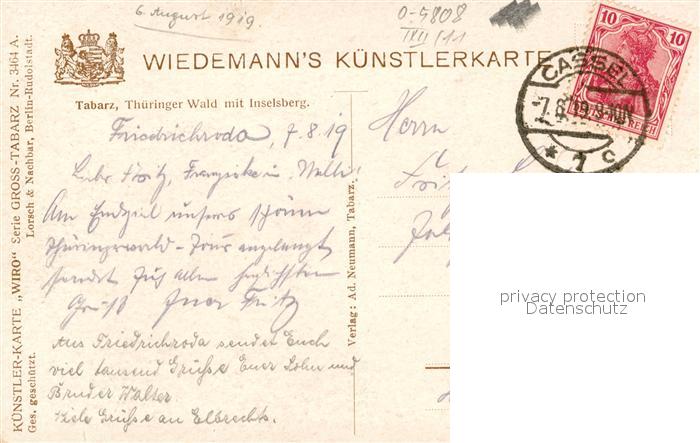 6. August 1919
0-5808
WIEDEMANN'S KÜNSTLERKARTE
10 10
REICH
CASSEL
-7.8.19.8-
* 1 c
Tabarz, Thüringer Wald mit Inselsberg.
Friedrichroda, 7.8.19
Liebe Fritz, Franziska u.
Am Endziel unserer schönen
Thüringerwald-Tour angelangt
sendet Euch allen herzlichsten
Gruß Euer Fritz
Aus Friedrichroda sendet Euch
viel tausend Grüße Euer Sohn und
Bruder Walter.
Viele Grüße an Elbrechts.
Herrn
Verlag: Ad. Neumann, Tabarz.
KÜNSTLER-KARTE „WIRO“ Serie GROSS-TABARZ Nr. 3464 A.
Ges. geschützt. Lorsch & Nachbar, Berlin-Rudolstadt.
privacy protection
Datenschutz